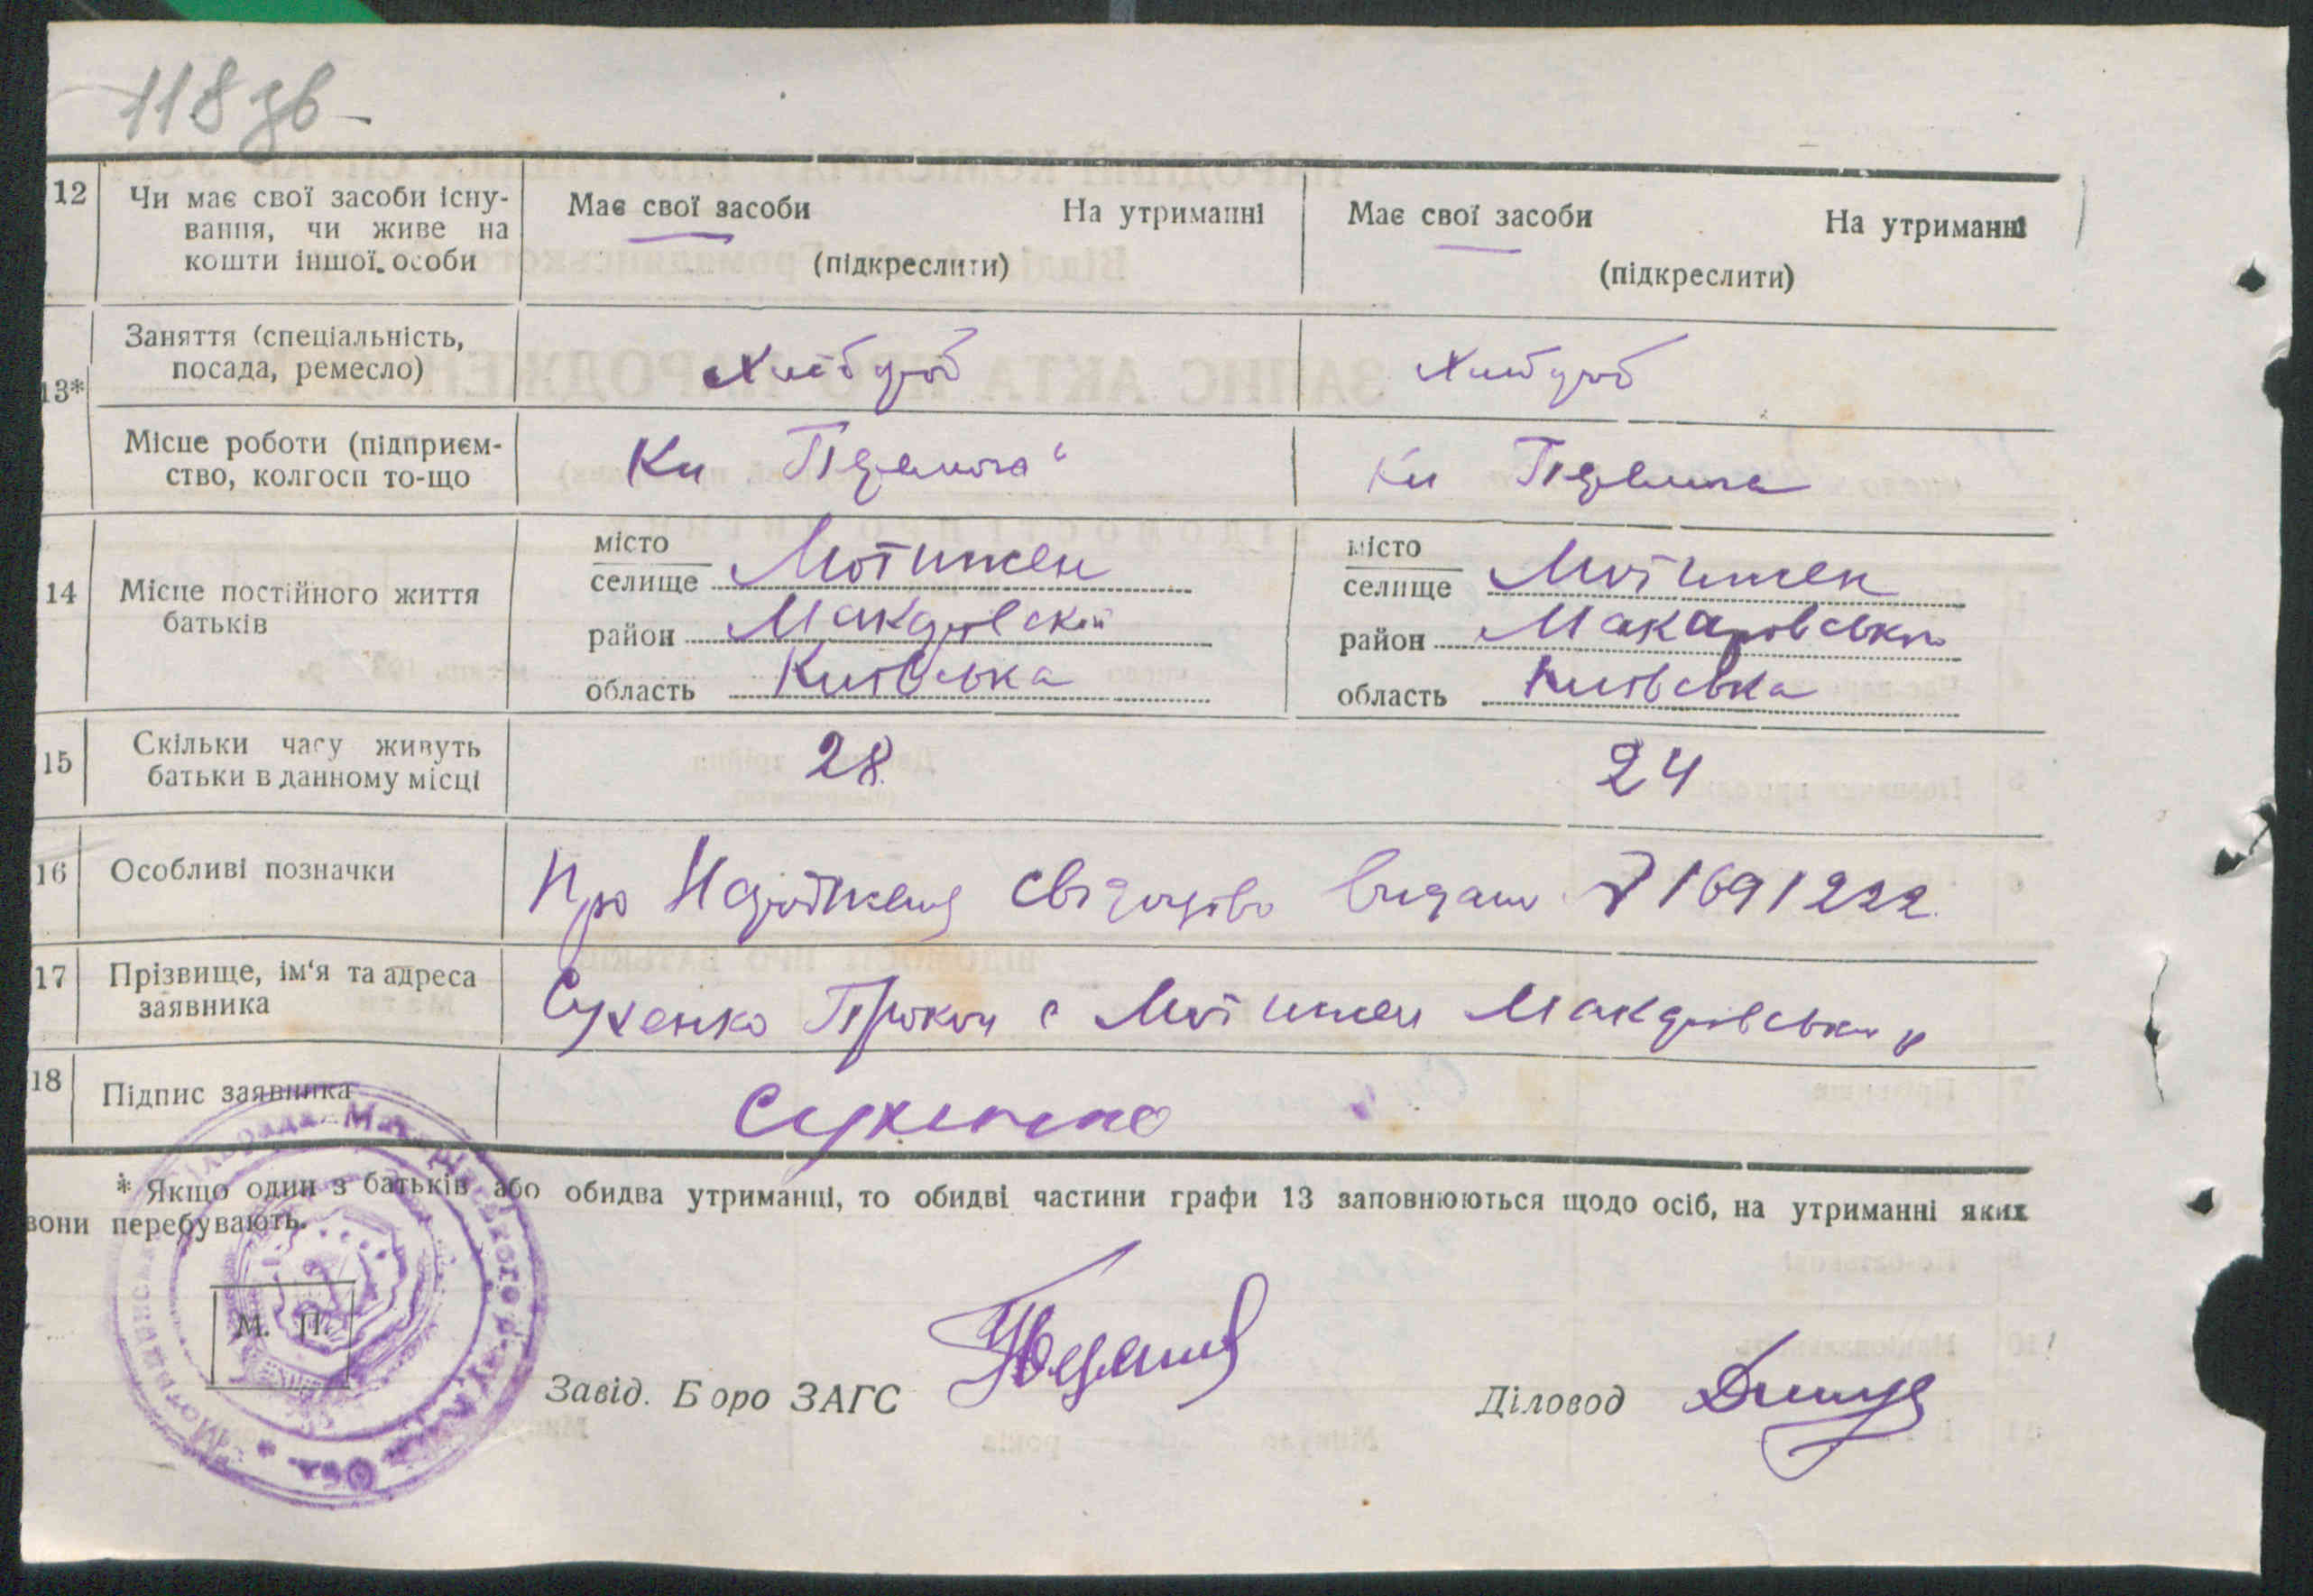 118 зв
12 Чи має свої засоби існу- Має свої засоби На утриманні Має свої засоби На утриманні
вання, чи живе на
кошти іншої особи (підкреслити) (підкреслити)
Заняття (спеціальність, Хлібороб Хлібороб
посада, ремесло)
13*
Місце роботи (підприєм-
ство, колгосп то-що
місто Мотижен місто Мотижен
селище селище
14 Місце постійного життя район Макаровский район Макаровськи
батьків
область Київська область Київська
15 Скільки часу живуть 28 24
батьки в данному місці
16 Особливі позначки Про Народження свідоцтво видано 1691222
17 Прізвище, ім'я та адреса Сухенко Прокіп с Мотижен Макаровськи
заявника
18 Підпис заявника Сухенко
* Якщо один з батьків або обидва утриманці, то обидві частини графи 13 заповнюються щодо осіб, на утриманні яких
вони перебувають.
М. П.
Завід. Бюро ЗАГС Діловод